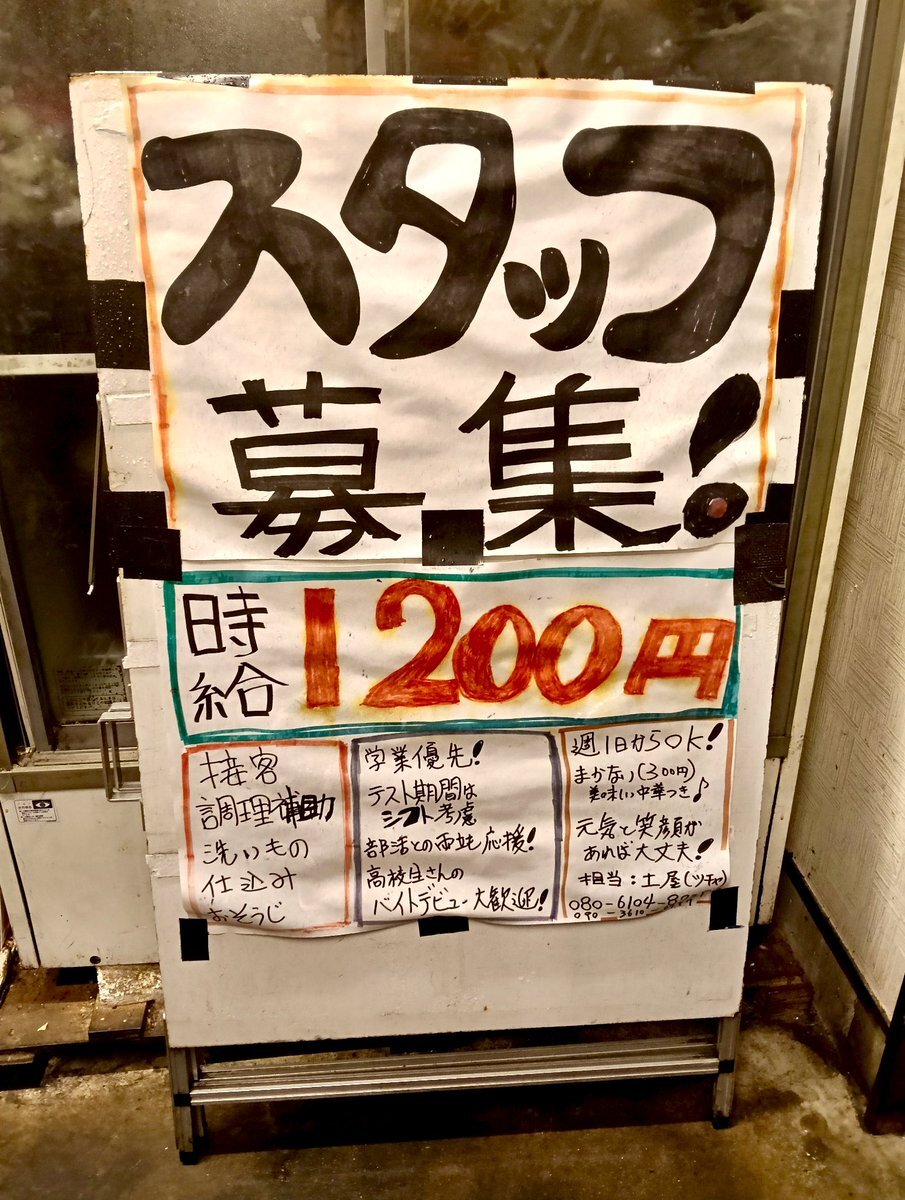 スタッフ
募集!
時給 1200円
接客
調理補助
洗いもの
仕込み
おそうじ
学業優先!
テスト期間は
シフト考慮
部活との両立応援!
高校生さんの
バイトデビュー大歓迎!
週1日からOK!
まかない(300円)
美味しい中華つき♪
元気と笑顔が
あれば大丈夫!
担当:土屋(ツチヤ)
080-6104-
090-3610-